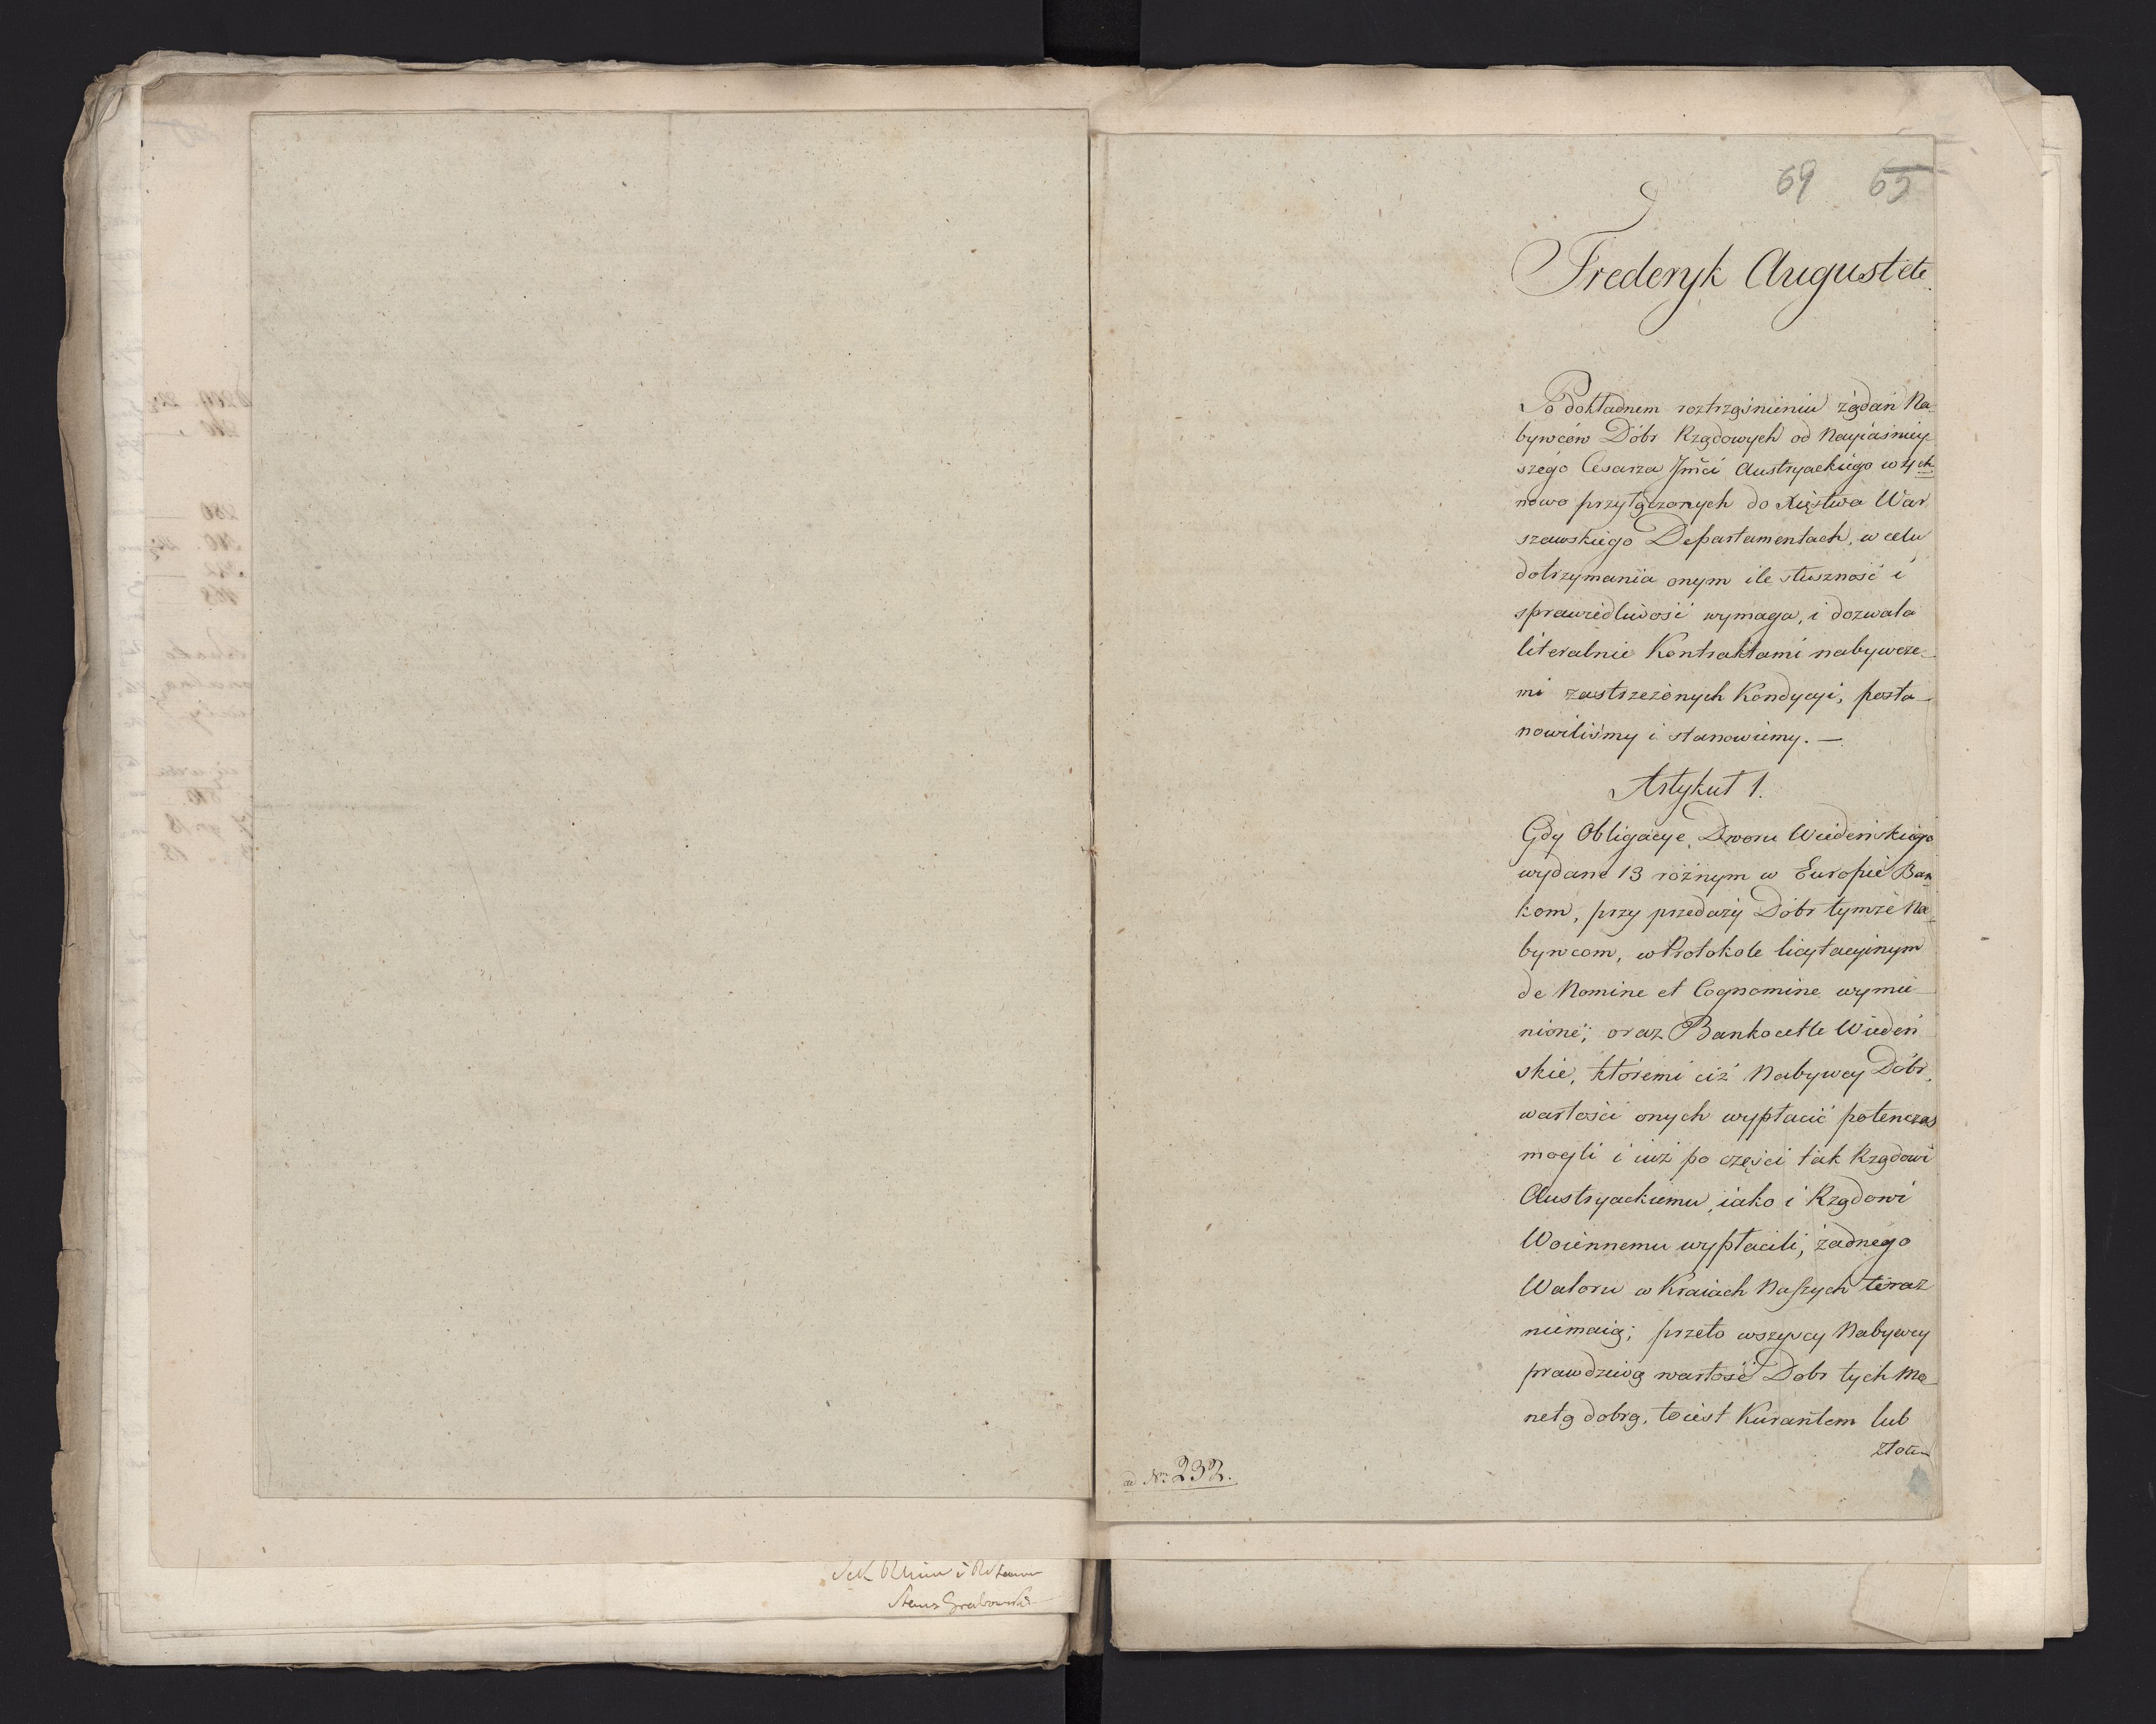 69 65
Frederyk August etc.
Po dokładnem roztrząśnieniu żądań Na-
bywców Dóbr Rządowych od Nayiaśniey-
szego Cesarza Jmści Austryackiego w 4ch
nowo przyłączonych do Xięstwa War
szawskiego Departamentach, w celu
dotrzymania onym ile słuszność i
sprawiedliwość wymaga, i dozwala
literalnie Kontraktami nabywcze-
mi zastrzeżonych Kondycyi, posta-
nowiliśmy i stanowiemy. —
Artykuł 1.
Gdy Obligacye, Dworu Wiedeńskiego
wydane 13 różnym w Europie Ban-
kom, przy przedaży Dóbr tymże Na-
bywcom, w Protokole licytacyinym
de Nomine et Cognomine wymie-
nione; oraz Bankocetle Wiedeń
skie, któremi ciż Nabywcy Dóbr,
wartości onych wypłacić potenczas
mogli i iuż po części tak Rządowi
Austryackiemu, iako i Rządowi
Woiennemu wypłacili, żadnego
Waloru w Kraiach Naszych teraz
niemaią; przeto wszyscy Nabywcy
prawdziwą wartość Dobr tych Mo-
netą dobrą, to iest Kurantem lub
złotem
ad Nr 232.
Stanis Grabowski